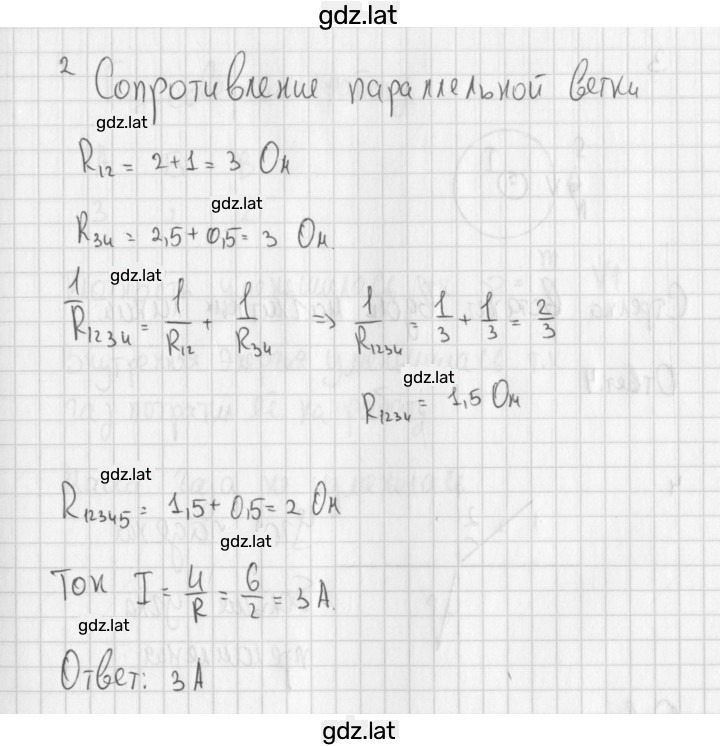 gdz.lat
2 Сопротивление параллельной ветки
gdz.lat
R₁₂ = 2+1 = 3 Ом
gdz.lat
R₃₄ = 2,5 + 0,5 = 3 Ом.
gdz.lat
1/R₁₂₃₄ = 1/R₁₂ + 1/R₃₄ => 1/R₁₂₃₄ = 1/3 + 1/3 = 2/3
gdz.lat
R₁₂₃₄ = 1,5 Ом
gdz.lat
R₁₂₃₄₅ = 1,5 + 0,5 = 2 Ом
gdz.lat
Ток I = U/R = 6/2 = 3 А.
gdz.lat
Ответ: 3 А
gdz.lat